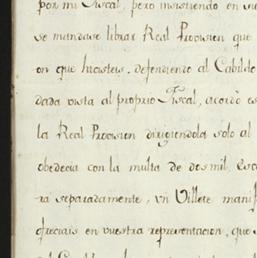 por mi Fiscal, pero insistiendo en su
se mandase librar Real Provision que
on que hicisteis, defendiendo al Cabildo
dada vista al proprio Fiscal, acordò es
la Real Provision dirigiendola solo al
obedecia con la multa de dos mil esc
rá separadamente, vn Villete manif
ofreciais en vuestra representacion, que